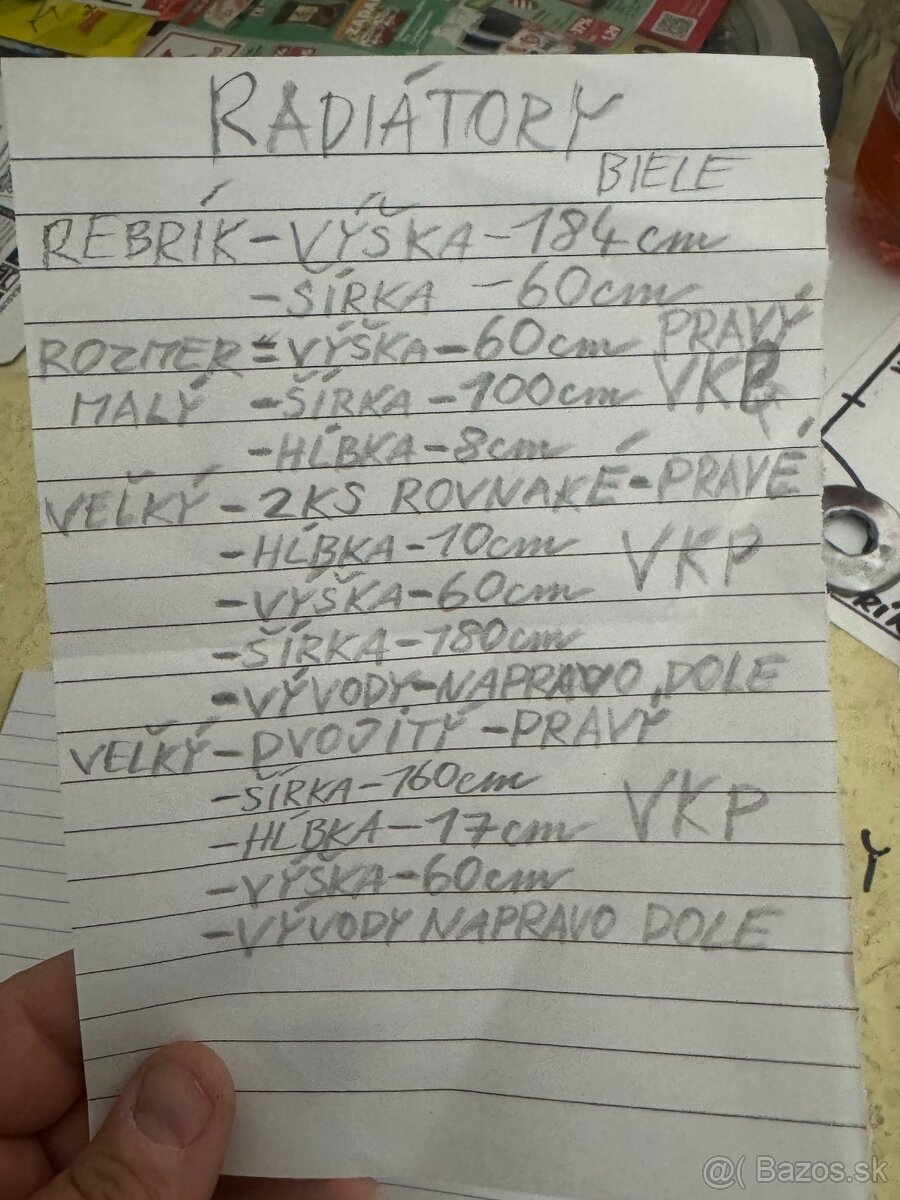 RADIÁTORY
BIELE
REBRÍK - VÝŠKA - 184cm
- ŠÍRKA - 60cm
ROZMER = VÝŠKA - 60cm PRAVÝ
MALÝ - ŠÍRKA - 100cm VKP
- HĹBKA - 8cm
VEĽKÝ - 2KS ROVNAKÉ - PRAVÉ
- HĹBKA - 10cm VKP
- VÝŠKA - 60cm
- ŠÍRKA - 180cm
- VÝVODY - NAPRAVO DOLE
VEĽKÝ - DVOJÍTÝ - PRAVÝ
- ŠÍRKA - 160cm
- HĹBKA - 17cm VKP
- VÝŠKA - 60cm
- VÝVODY NAPRAVO DOLE
@( Bazos.sk